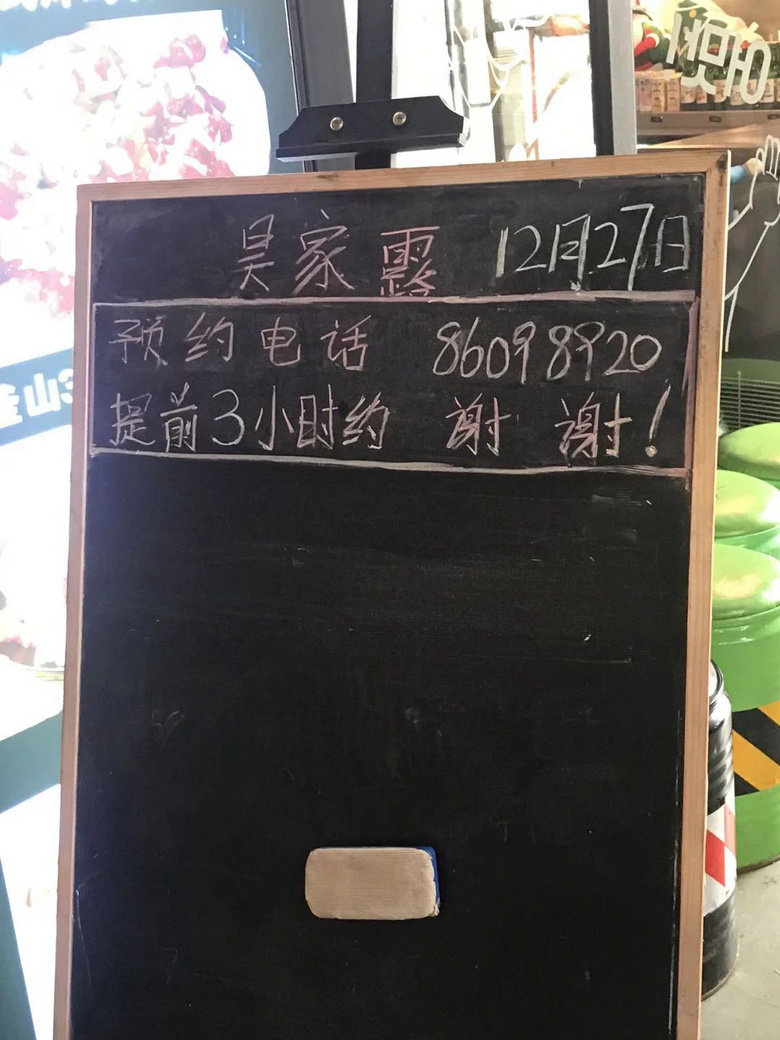 昊家露 12月27日
预约电话 86098920
提前3小时约 谢 谢!